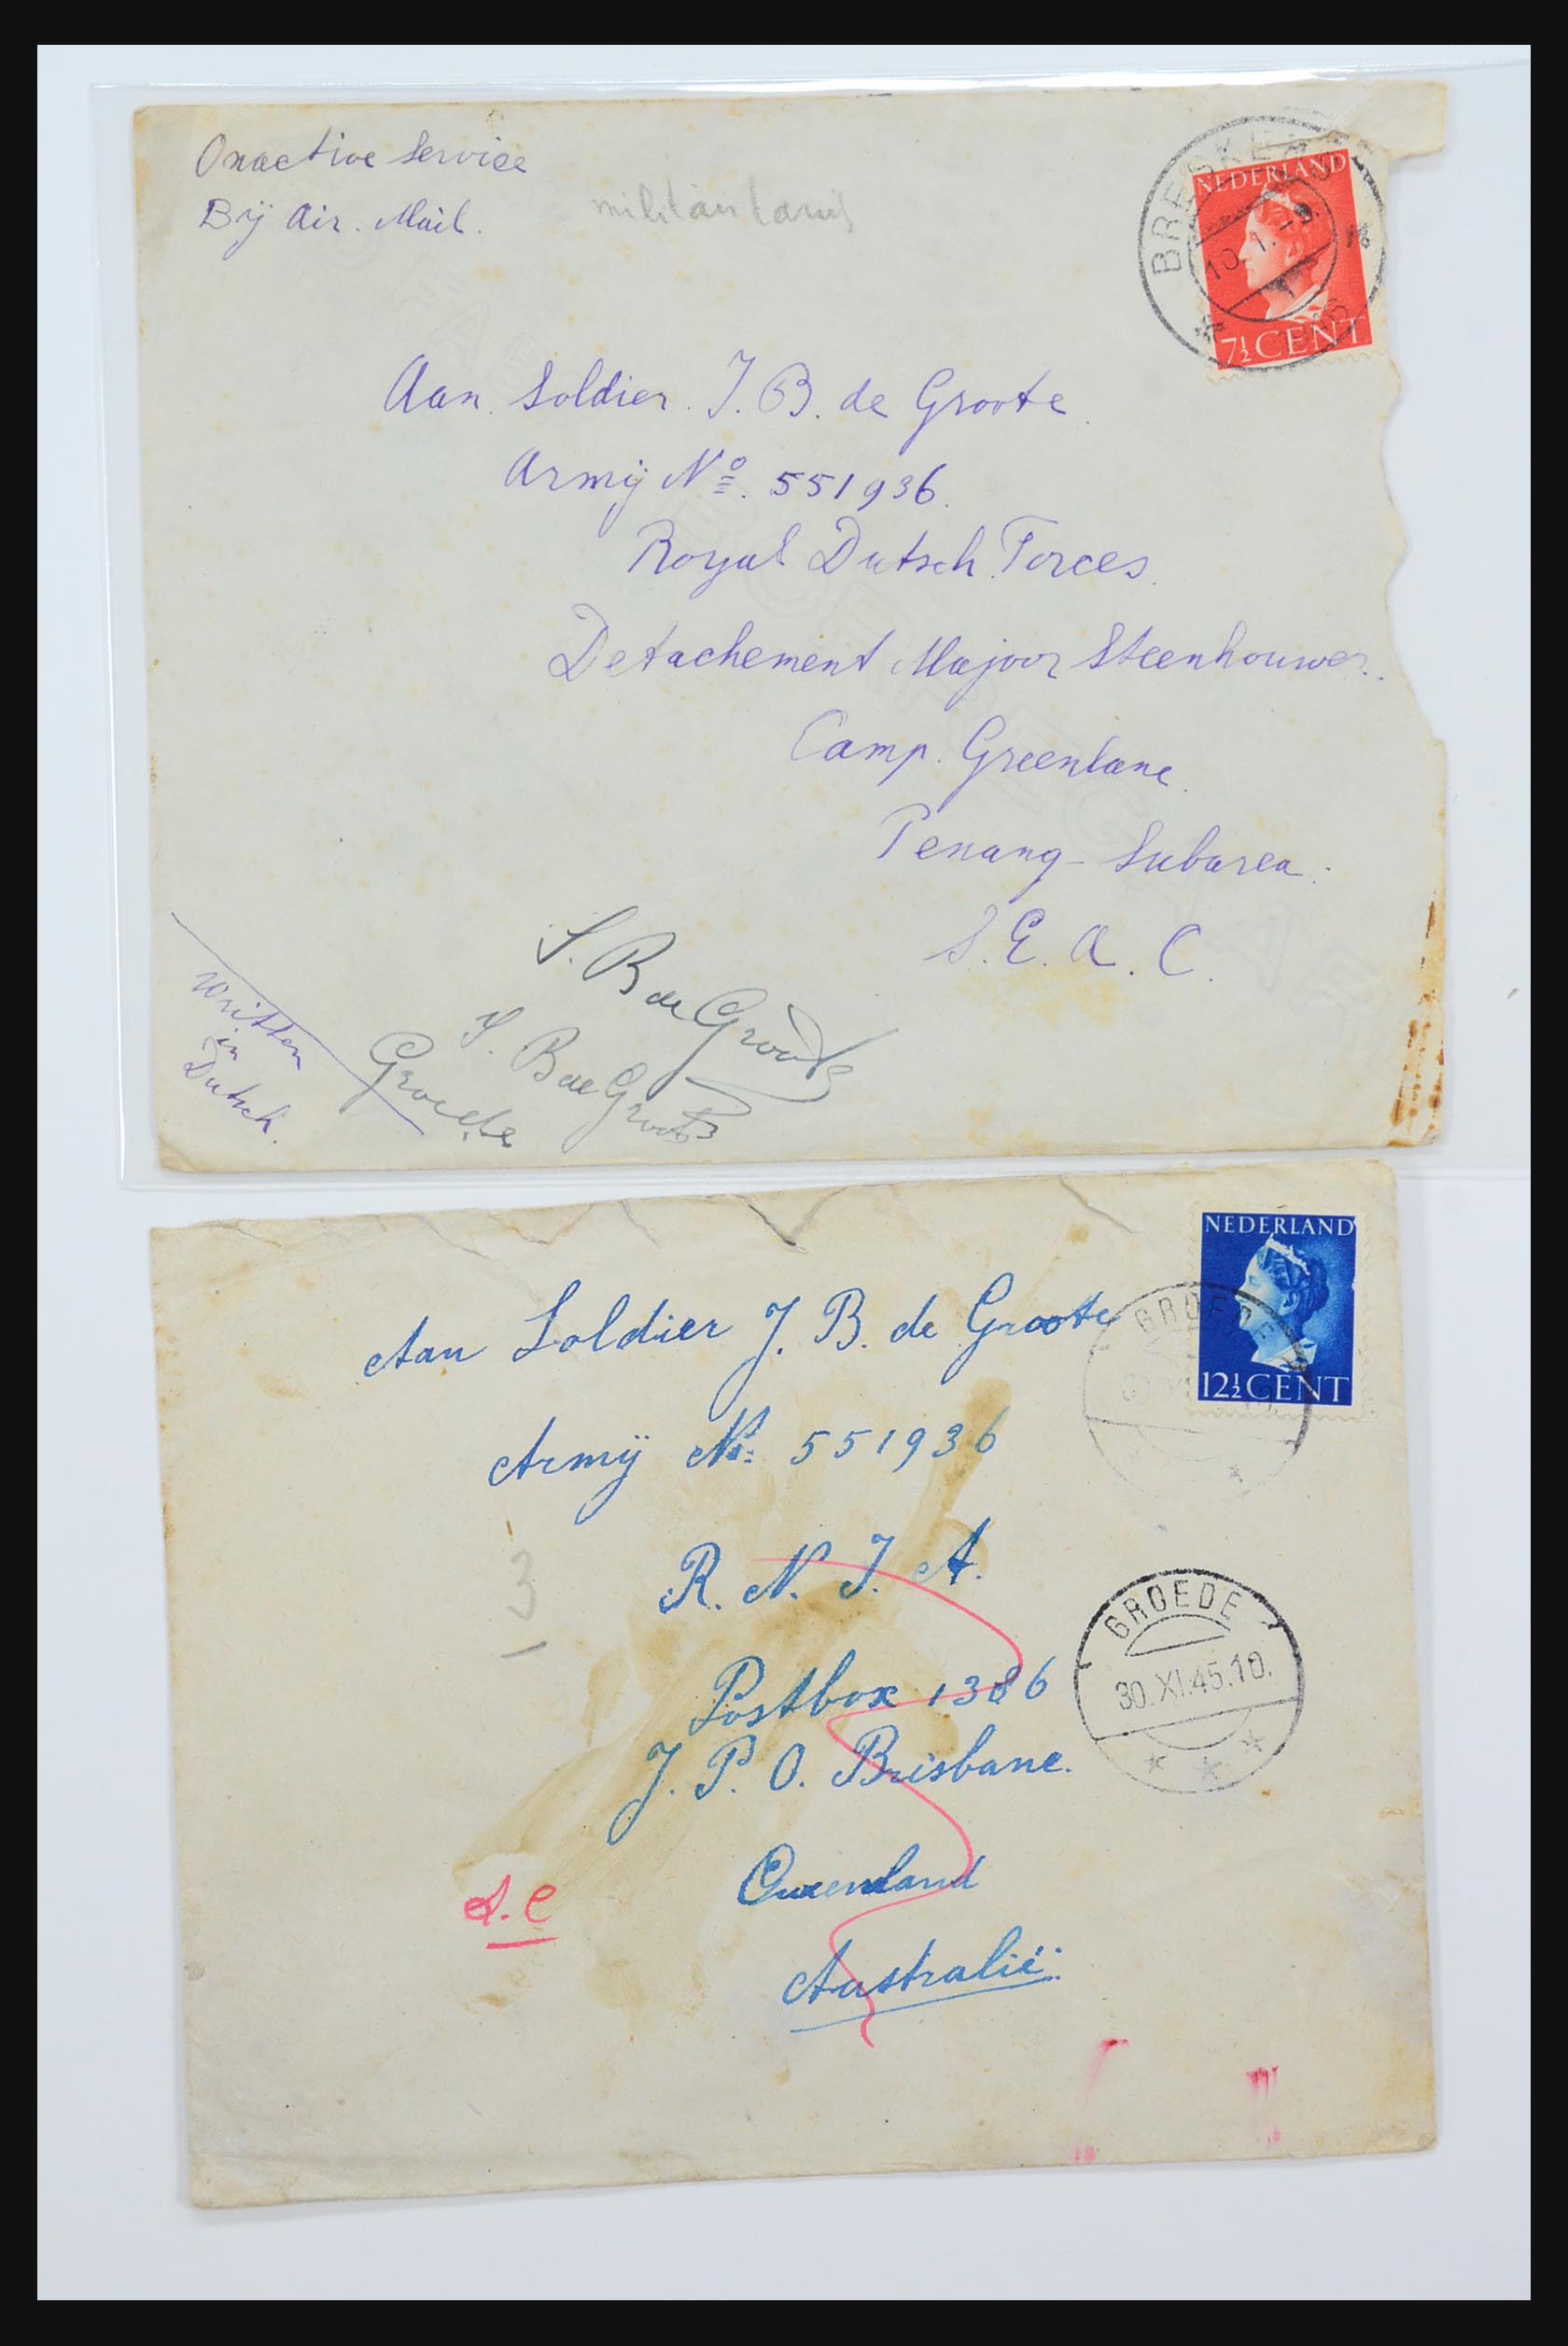 Onactive Service
Bÿ Air. Mail.
militair tarief
BRESKENS
10.1.-9.
NEDERLAND
7½CENT
Aan Soldier. J. B. de Groote
Armÿ Nº. 551936.
Royal Dutsch Forces.
Detachement Majoor Steenhouwer.
Camp. Greenlane.
Penang- Subarea.
S.E.A.C.
J. B de Groote
J. B de Groote
Groede
Written
in
Dutsch.
NEDERLAND
12½CENT
GROEDE
Aan Soldier J. B. de Groote
Armÿ No: 551936
R. N. J. A.
3
GROEDE
30.XI.45.10.
Postbox 1386
J. P. O. Brisbane.
Queenland
A.C
Australië.